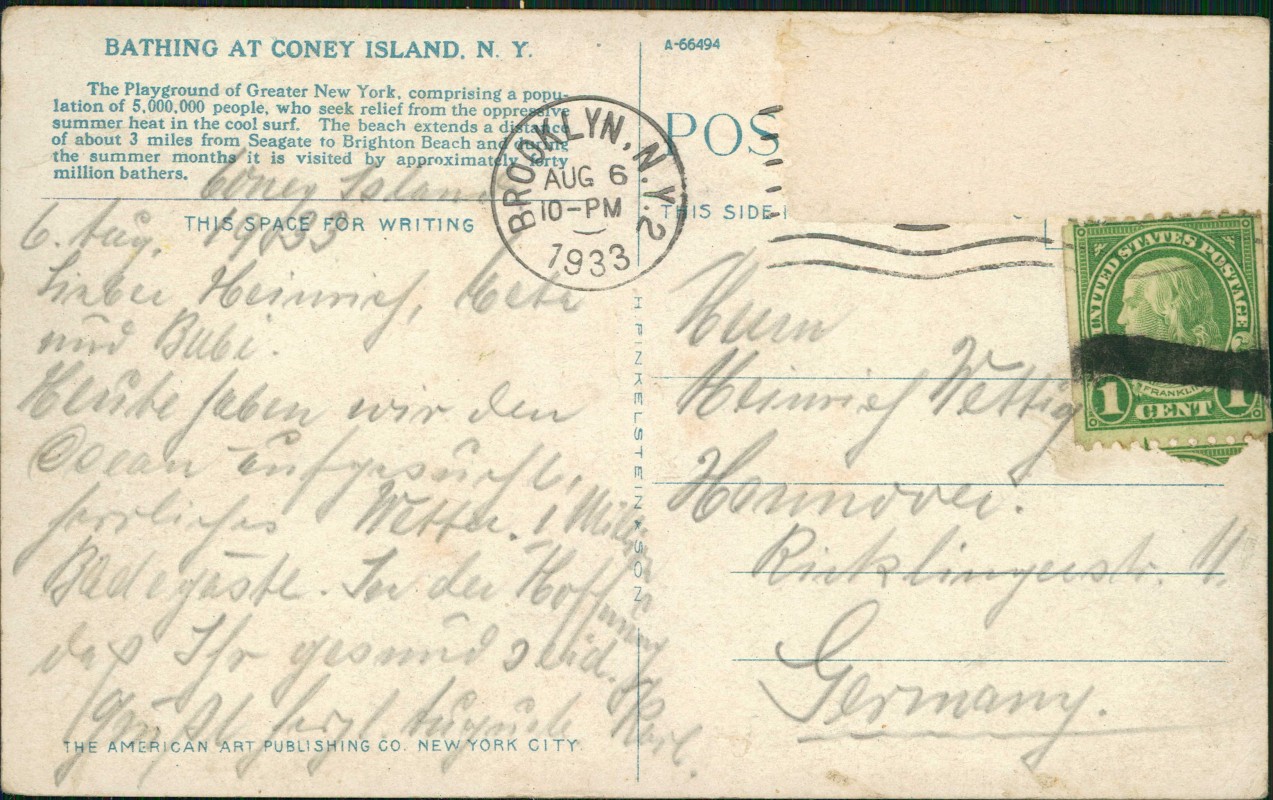 BATHING AT CONEY ISLAND, N. Y.
The Playground of Greater New York, comprising a popu-
lation of 5,000,000 people, who seek relief from the oppressive
summer heat in the cool surf. The beach extends a distance
of about 3 miles from Seagate to Brighton Beach and during
the summer months it is visited by approximately forty
million bathers.
Coney Island
THIS SPACE FOR WRITING
6. Aug. 1933
Lieber Heinrich,
und Bubi.
Heute haben wir den
Ocean aufgesucht,
herrliches Wetter. 1 Million
Badegäste. In der Hoffnung
daß Ihr gesund seid.
grüßt herzl. Karl.
THE AMERICAN ART PUBLISHING CO. NEW YORK CITY
H FINKELSTEIN & SON
A-66494
POS
THIS SIDE
BROOKLYN, N.Y. 2
AUG 6
10-PM
1933
UNITED STATES POSTAGE
FRANKLIN
1 CENT 1
Herrn
Heinrich Wettig
Hannover.
Ricklingerstr.
Germany.